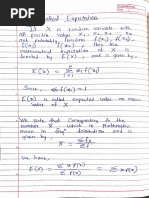 Expectation
If X is random variable with
all possible values x₁, x₂, x₃ ... xₙ
and probability function f(x₁), f(x₂),
f(x₃) ..., then the
mathematical expectation of X is
denoted by E(x) and is given by,
E(x) = Σ xᵢ f(xᵢ)
Since, Σ f(xᵢ) = 1
E(x) is called expected value or mean
value of X
We note that corresponding to the
number X, which is a
mean in freqⁿ distribution and is
given by,
We have,
E(x) = Σ x p(x) / Σ p(x) = Σ x p(x)